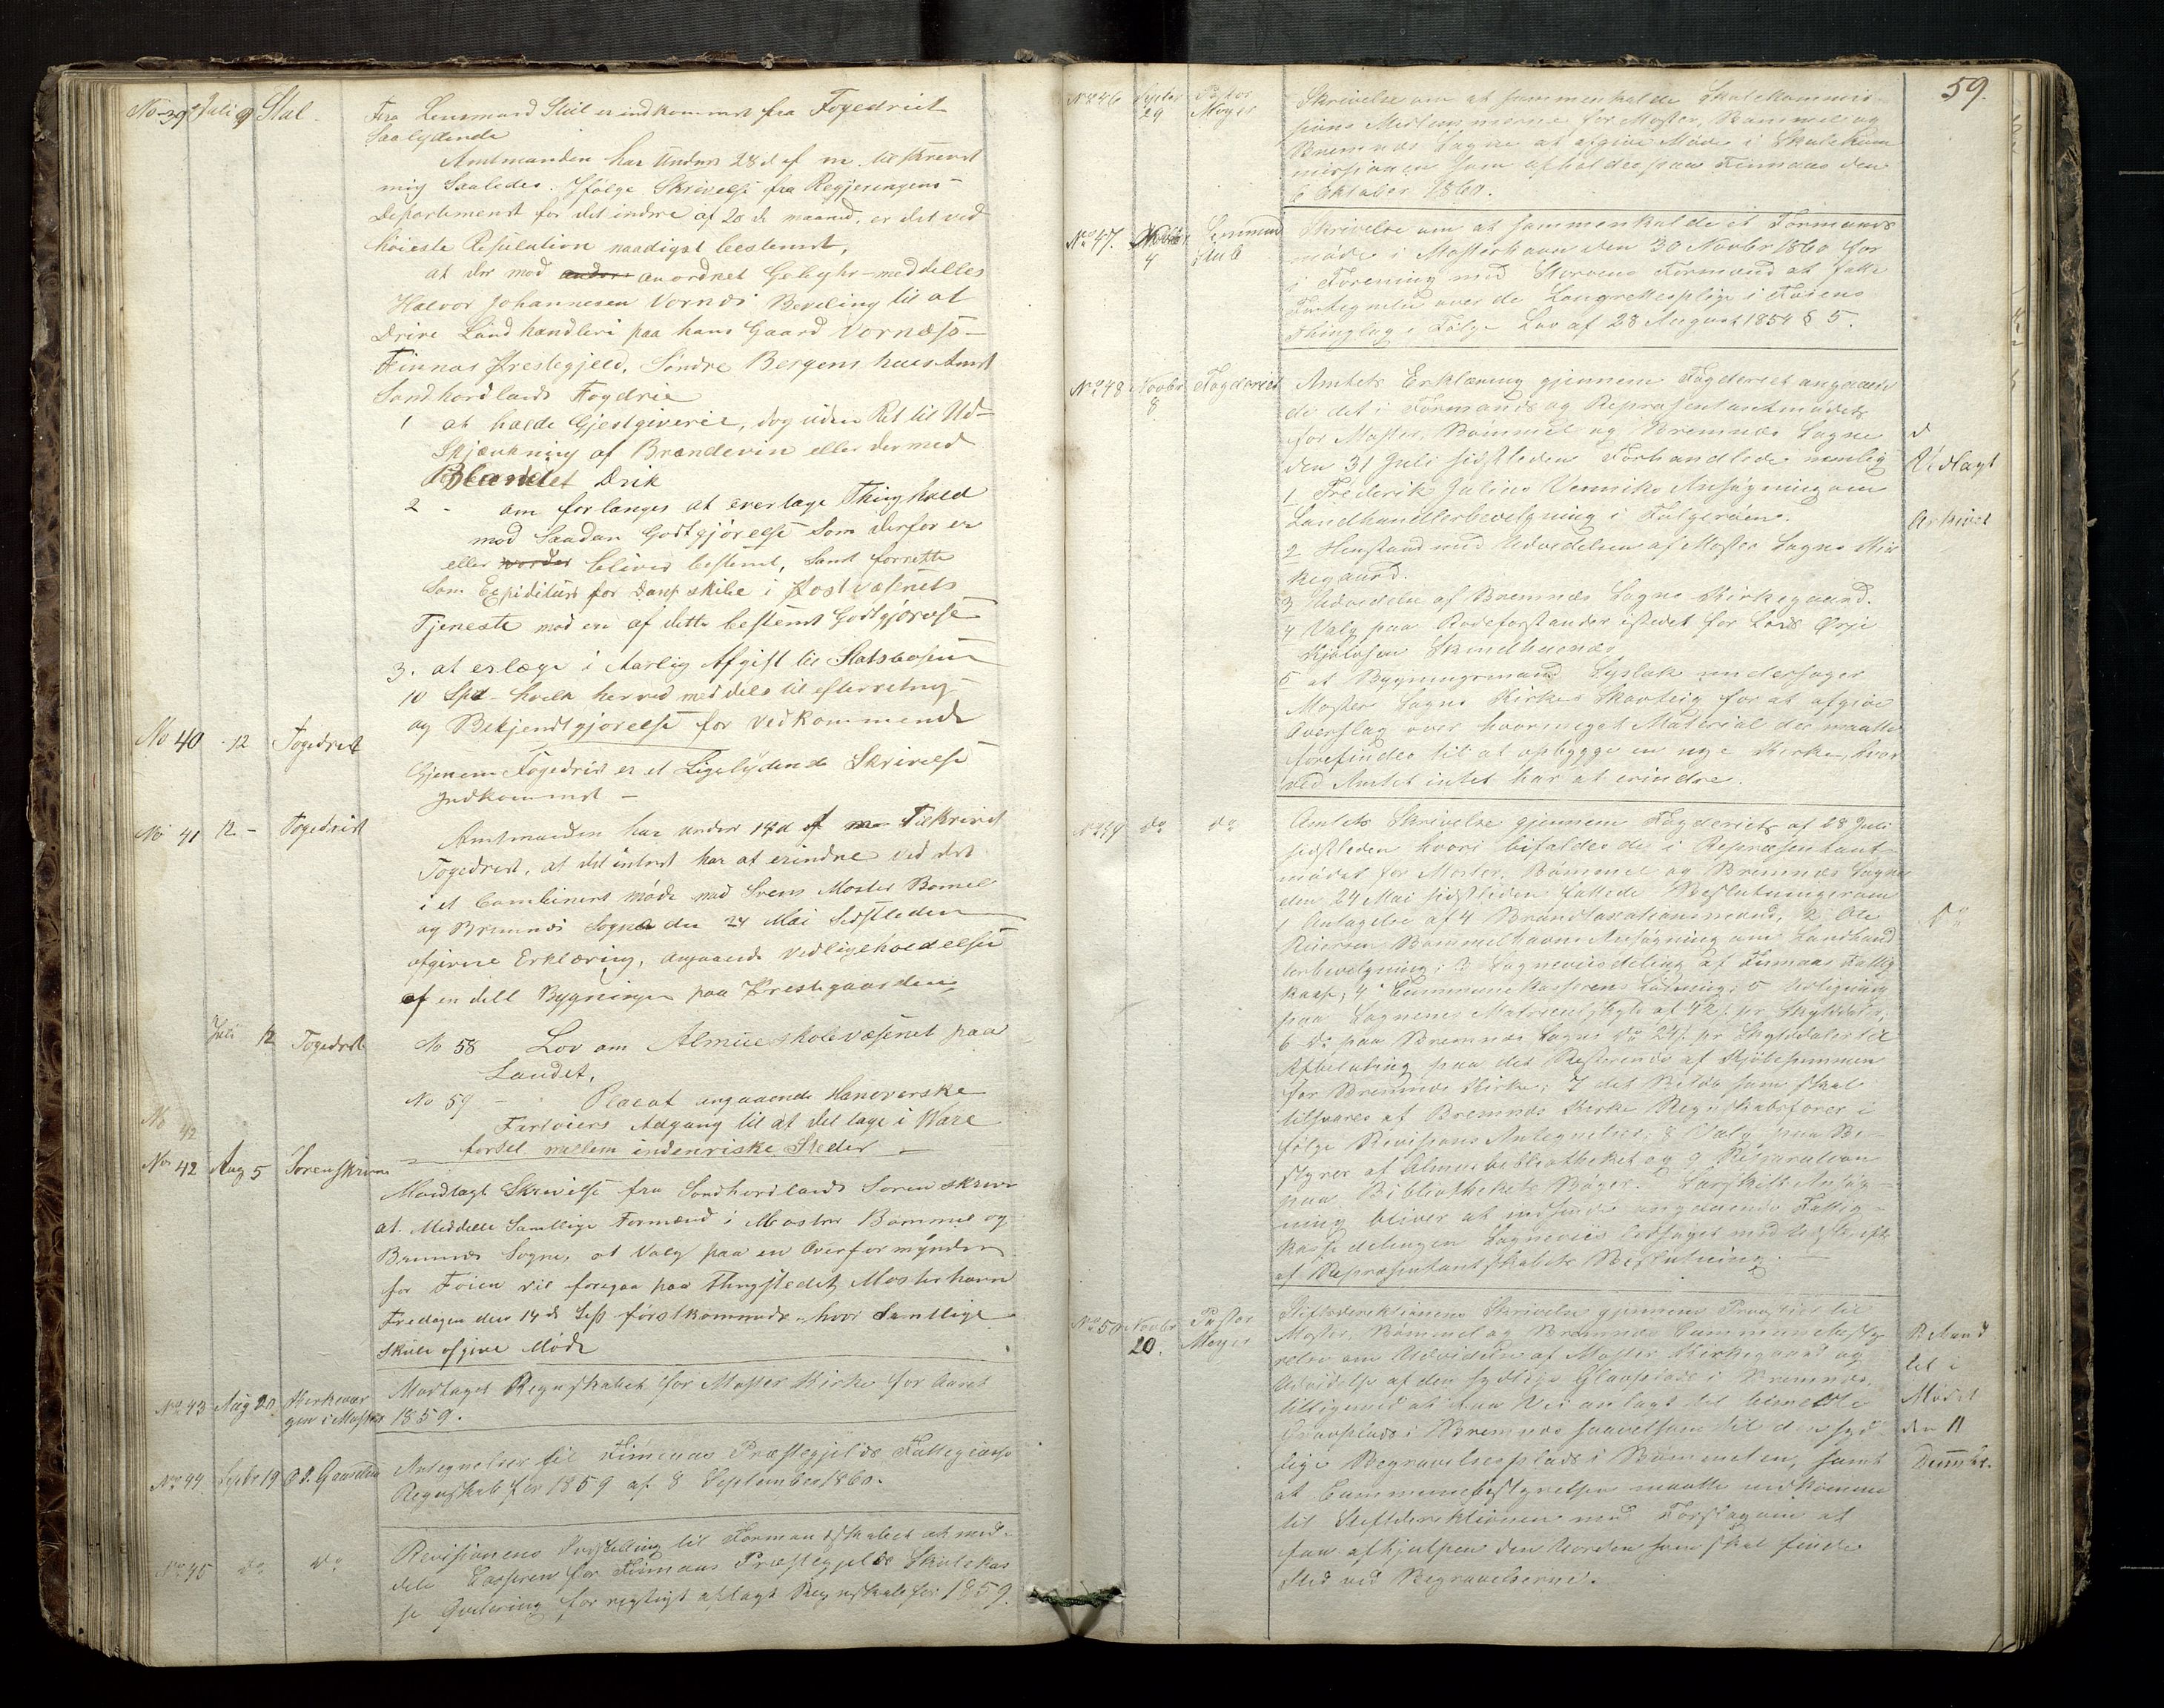 No 39 Juli 9 Stal.
Fra Lensmand Stül er indkommet fra Fogedriet
Saalydende
Amtmanden har Under 28d af m. tilskrevet
mig Saaledes. Ifølge Skrivelse fra Regjeringens
Departement for det indre af 20 ds maaned, er det ved
høieste Resulution naadigst bestemt,
at der mod anordnet Gebyhr meddelles
Halvor Johannesen Vornæs Beviling til at
Drive Landhandleri paa hans Gaard Vornæs
Finnas Prestegjeld, Søndre Bergenhuus Amt
Søndhordlands Fogdrie
1 at holde Gjestgiverie, dog uden Ret til Ud-
Skjænkning af Brændevin eller dermed
Blandet Drik
2 - om forlanges at overtage Thinghold
mod Saadan Godtgjørelse Som derfor er
eller bliver bestemt, Samt forrette
Som Expiditiør for Dampskibe i Postvæsenets
Tjeneste mod en af dette bestemt Godtgjørelse
3. at erlæge i Aarlig Afgift til Statskassen
10 Spd - hvilk herved meddeles til efterretning
og Bekjendtgjørelse for vedkommende
No 40 - 12 Fogedriet
Gjenem Fogedriet er et Ligelydende Skrivelse
Indkommet -
No 41 12 - Fogedriet
Amtmanden har under 14d af m Tilskrivet
Fogedriet, at det intet har at erindre ved det
i et Combineret møde med Svens Moster Bømel
og Bremnæs Sogne den 24 Mai Sidstleden
afgivne Erklæring, angaaende Vedligeholdelse
af en dell Bygninger paa Prestegaarden
Juli 12 Fogedriet
No 58 Lov om Almueskolevæsenet paa
Landet,
No 59 - Placat angaaende Hanoverske
Fartøiers Adgang til at deltage i Vare
førsel mellem indenriske Steder -
No 42
No 42 Aug 5 Sorenskriver
Modtagt Skrivelse fra Søndhordlands Sorenskriver
at Meddele Samtlige Formænd i Moster Bømmel og
Bremnæs Sogne, at Valg paa en Overformynder
for Føien vil foregaa paa Thingstedet Mosterhavn
Fredagen den 14 ds Sep førstkommende, hvor Samtlige
skulle afgive Møde
No 43 Aug 20 Kirkevær
gen i Moster
Modtaget Regnskabet for Moster Kirke for Aaret
1859.
No 44 Septbr 19
Antegnelser til Finnaas Præstegjelds Fattigcasse
Regnskab for 1859 af 8 September 1860.
No 45 do do
Revisionens Indstilling til Formandskabet at med-
dele Casseren for Finnaas Præstegjelds Skolekas
se Qvitering for rigtigt aflagt Regnskab for 1859.
59.
No 46 Septbr 29 Pastor Meyer
Skrivelse om at sammenkalde Skolekommis
sions Medlemmerne for Moster, Bømmel og
Bremnæs Sogne at afgive Møde i Skolekom
missionen som afholdes paa Finnaas den
6 Oktober 1860.
No 47. 4 Lensmand Stüb
Skrivelse om at sammenkalde et Formands
møde i Mosterhavn den 30 Novbr 1860 for
i Forening med Storøens Formænd at fatte
Fortegnelse over de Laugrettespligt i Føiens
Thinglag i Følge Lov af 28 August 1854 § 5.
No 48 Novbr 8 Fogderiet
Amtets Erklæring gjennem Fogderiet angaaen
de det i Formands og Repræsentantmødet
for Moster, Bømmel og Bremnæs Sogne
den 31 Juli sidstleden Forhandlede nemlig
1 Frederik Julius Ansøgning om
Landhandlerbevilgning i Folgerøen.
2 Henstand med Udvidelsen af Moster Sogns Kir
kegaard.
3 Udvidelse af Bremnæs Sogns Kirkegaard.
4 Valg paa Rodeforstander istedet for Lars Ørje
5 at Bygningsmand Lyslok undersøger
Moster Sogns Kirkes Skovteig for at afgive
Overslag over hvormeget Material der maatte
forefindes til at opbygge en nye Kirke, hvor
ved Amtet intet har at erindre.
Vedlagt
Arkivet
No 49 do do
Amtets Skrivelse gjennem Fogderiet af 28 Juli
sidstleden hvori bifaldes de i Repræsentant-
mødet for Moster, Bømmel og Bremnæs Sogne
den 24 Mai sidstleden fattede Beslutninger om
1 Antagelse af 4 Brandtaxationsmænd, 2 Ole
Bømmelhavns Ansøgning om Landhand
lerbevilgning; 3 Sogneviisdeling af Finnaas Fattig
kasse; 4 Communekasserens Lønning; 5 Udligning
paa Sognenes Matreculskyld at 42 s. pr. Skylddaler,
6 do paa Bremnæs Sogns do 24 s. pr Skylddaler til
Afbetaling paa det Resterende af Kjøbesummen
for Bremnæs Kirke; 7 det Beløb som skal
tilsvares af Bremnæs Kirke Regnskabsfører i
følge Revisions Antegnelser; 8 Valg paa Be-
styrer af Almuebibliotheket og 9 Reparation
paa Bibliothekets Bøger. Særskilt Ansøg-
ning bliver at indsende angaaende Fattig-
kassedelingen Sogneviis ledsaget med Udskrift
af Repræsentantskabets Beslutning.
do
No 50 Novbr 20. Pastor Meyer
Stiftsdirektionens Skrivelse gjennem Provstiet til
Moster, Bømmel og Bremnæs Communebesty
relse om Udvidelse af Moster Kirkegaard og
Udvidelse af den sydlige Gravplads i Bremnæs,
tilligemed at faa Vei anlagt til bemeldte
Gravplads i Bremnæs saavelsom til den syd-
lige Begravelsesplads i Bømmeløen, samt
at Communebestyrelsen maatte indkomme
til Stiftsdirektionen med Forslag om at
faa afhjulpen den Uorden som skal finde
Sted ved Begravelserne.
Behand
let i
Mødet
den 11
Decmbr.